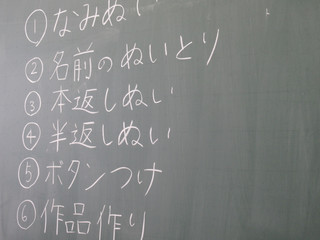 ①なみぬい
②名前のぬいとり
③本返しぬい
④半返しぬい
⑤ボタンつけ
⑥作品作り